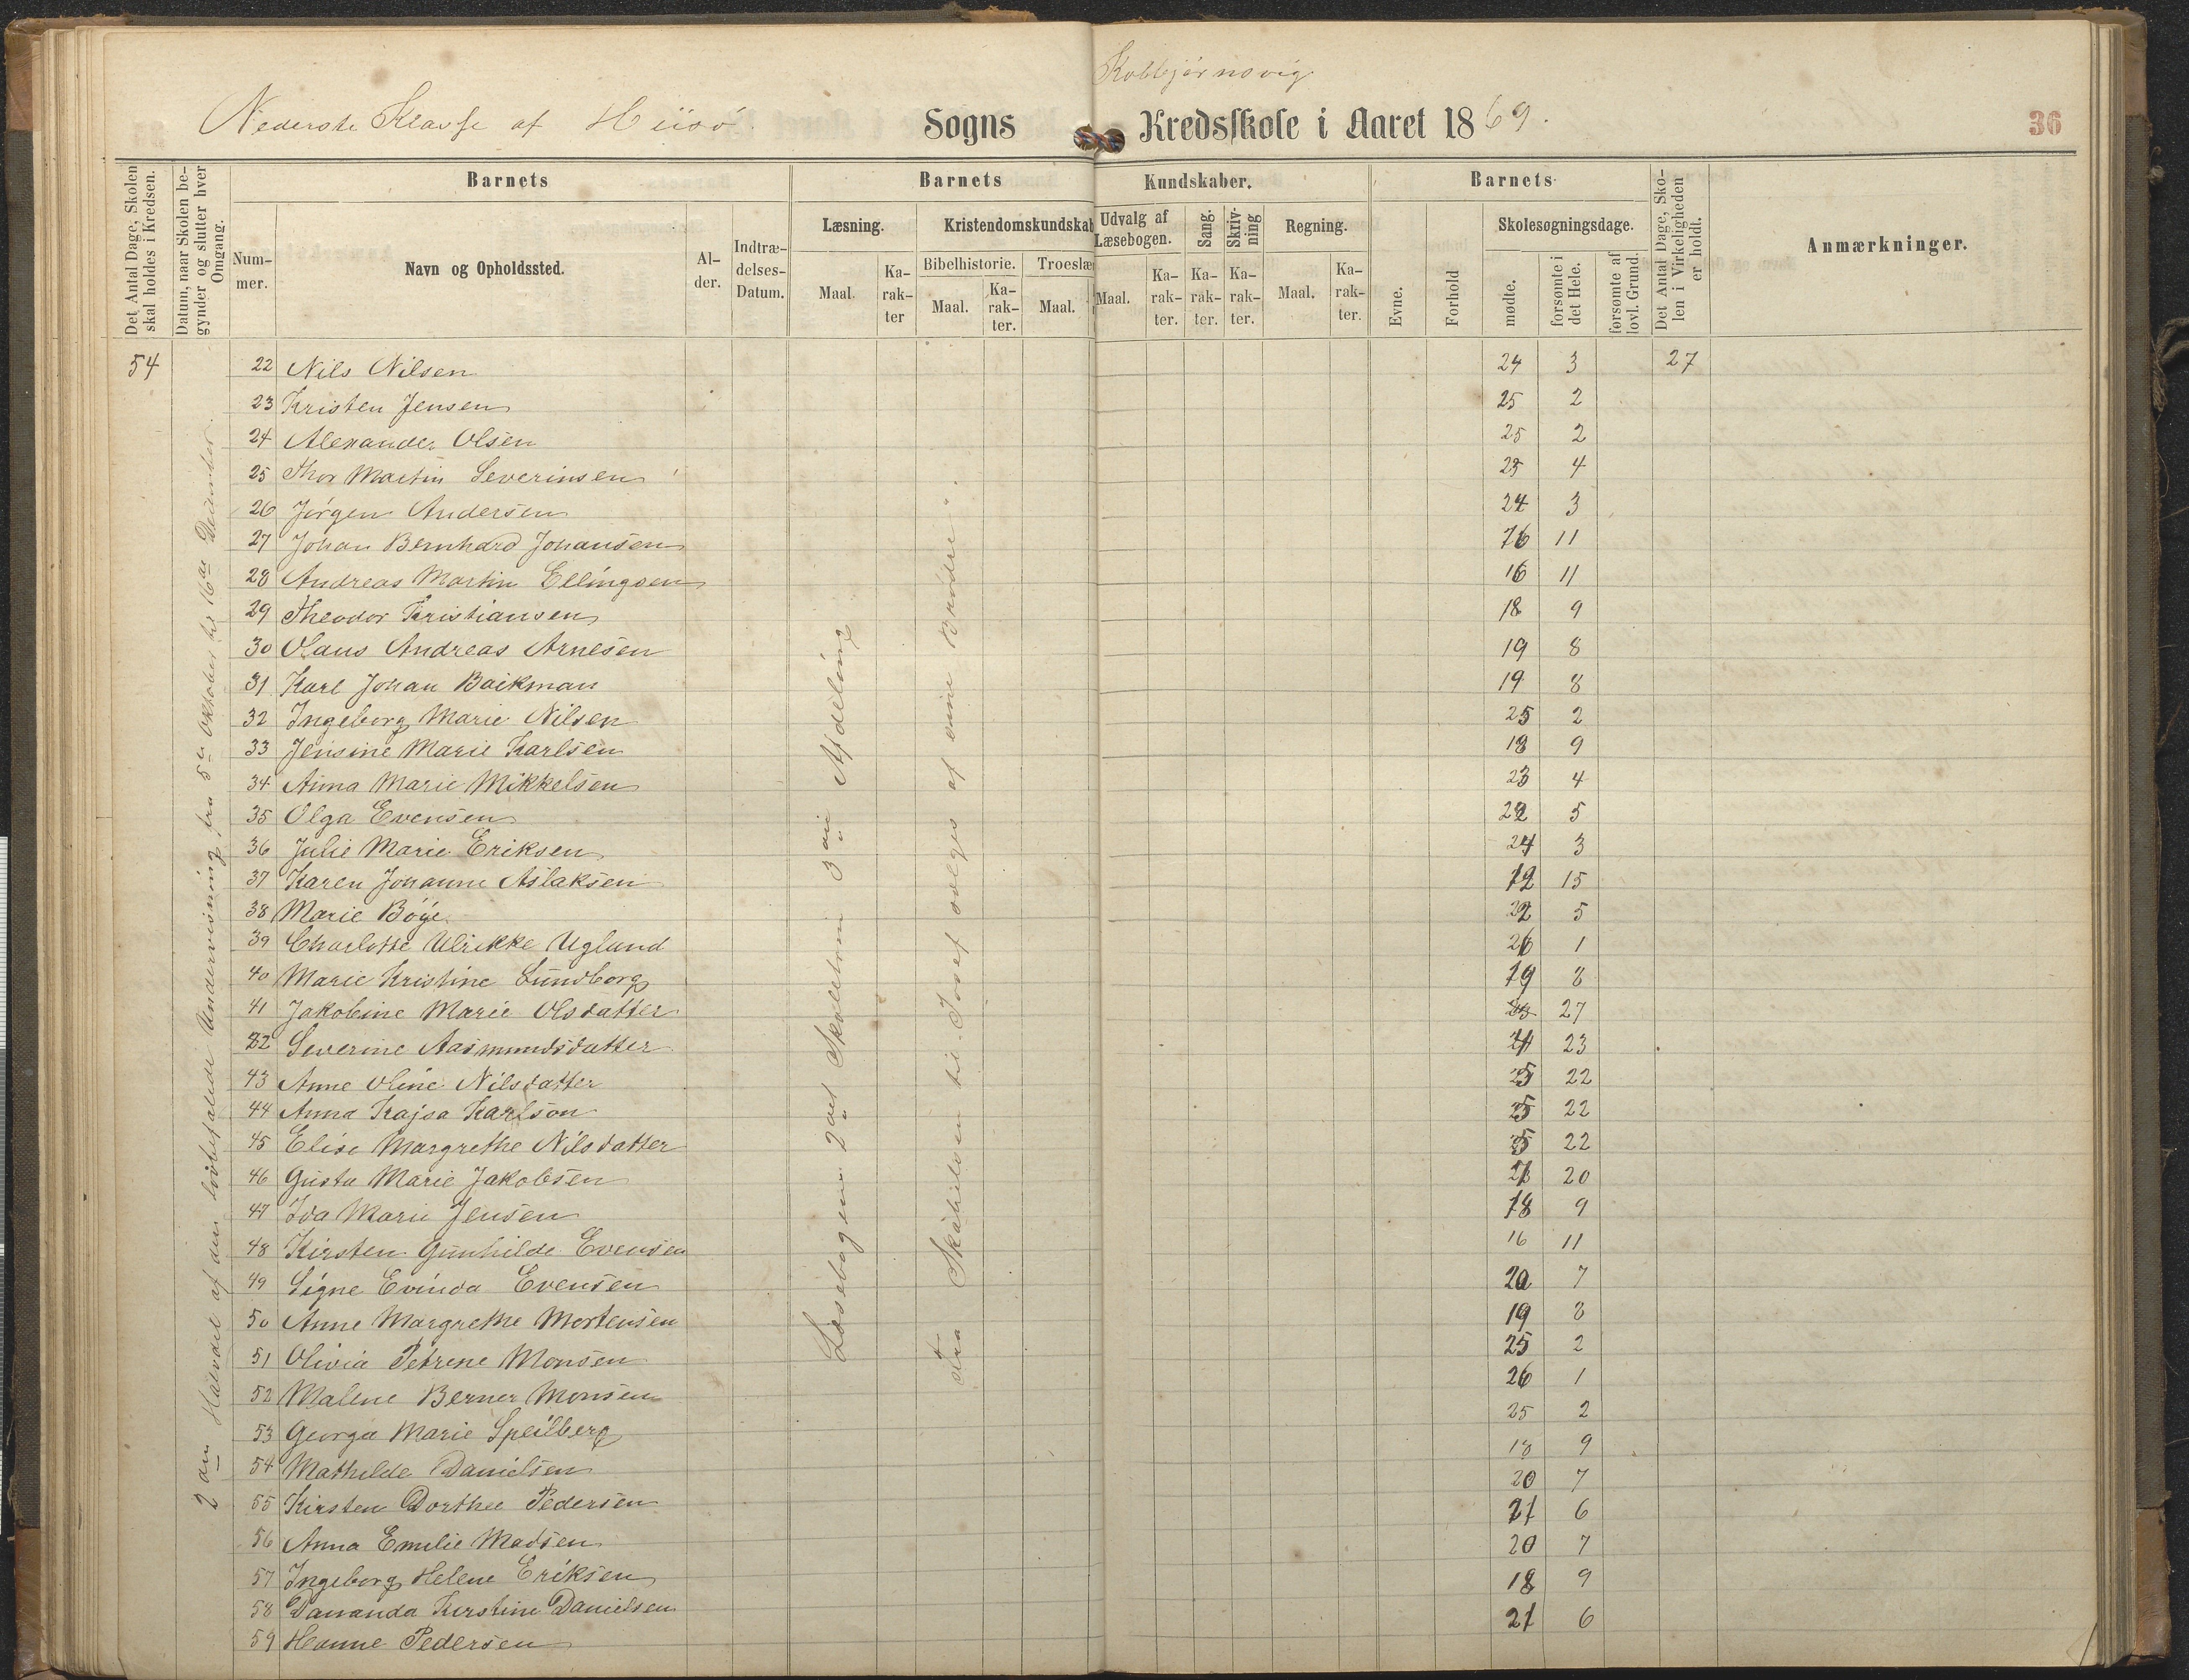 Kolbjørnsvig
Nederste Klasse af Hisø Sogns Kredsskole i Aaret 1869.
36
Det Antal Dage, Skolen skal holdes i Kredsen.
Datum, naar Skolen begynder og slutter hver Omgang.
Barnets
Barnets Kundskaber.
Barnets
Det Antal Dage, Skolen i Virkeligheden er holdt.
Anmærkninger.
Nummer.
Navn og Opholdssted.
Alder.
Indtrædelses-Datum.
Læsning.
Kristendomskundskab
Udvalg af Læsebogen.
Sang.
Skrivning
Regning.
Evne.
Forhold
Skolesøgningsdage.
Bibelhistorie.
Troeslæ
Maal.
Karakter
Maal.
Karakter.
Maal.
Maal.
Karakter.
Karakter.
Karakter.
Maal.
Karakter.
mødte.
forsømte i det Hele.
forsømte af lovl. Grund.
54
2den Halvdel af den befalede Undervisning fra 5te Oktober til 16de December.
Læsebogens 2det Skoletrin 3die Afdeling
Fra Skabelsen til Josef sælges af sine Brødre.
22 Nils Nilsen 24 3 27
23 Kristen Jensen 25 2
24 Alexander Olsen 25 2
25 Thor Martin Severinsen 23 4
26 Jørgen Andersen 24 3
27 Johan Bernhard Johansen 16 11
28 Andreas Martin Ellingsen 16 11
29 Theodor Kristiansen 18 9
30 Olaus Andreas Arnesen 19 8
31 Karl Johan Baikman 19 8
32 Ingeborg Marie Nilsen 25 2
33 Jensine Marie Karlsen 18 9
34 Anna Marie Mikkelsen 23 4
35 Olga Evensen 22 5
36 Julie Marie Eriksen 24 3
37 Karen Johanne Aslaksen 12 15
38 Marie Bøye 22 5
39 Charlotte Ulrikke Ugland 26 1
40 Marie Kristine Lundborg 19 8
41 Jakobine Marie Olsdatter 27
82 Severine Aasmundsdatter 4 23
43 Anne Oline Nilsdatter 5 22
44 Anna Kajsa Karlson 5 22
45 Elise Margrethe Nilsdatter 5 22
46 Gusta Marie Jakobsen 7 20
47 Ida Marie Jensen 18 9
48 Kirsten Gunhilde Evensen 16 11
49 Signe Evinda Evensen 20 7
50 Anne Margrethe Mortensen 19 8
51 Olivia Petrene Monsen 25 2
52 Malene Berner Monsen 26 1
53 Georga Marie Speilberg 25 2
54 Mathilde Danielsen 18 9
55 Kirsten Dorthea Pedersen 20 7
56 Anna Emilie Madsen 21 6
57 Ingeborg Helene Eriksen 20 7
58 Dananda Kirstine Danielsen 18 9
59 Hanne Pedersen 21 6